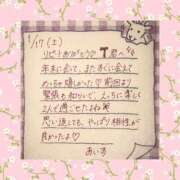 1/17(土)
リピートありがとう♡ T君へ
年末に会えて、またすぐに会えて
めっちゃ嬉しかった♡前回より
緊張も和らいで、えっちに楽しく
2人で過ごせたよね
思い返しても、やっぱり相性が
良かったよ♡
あいす